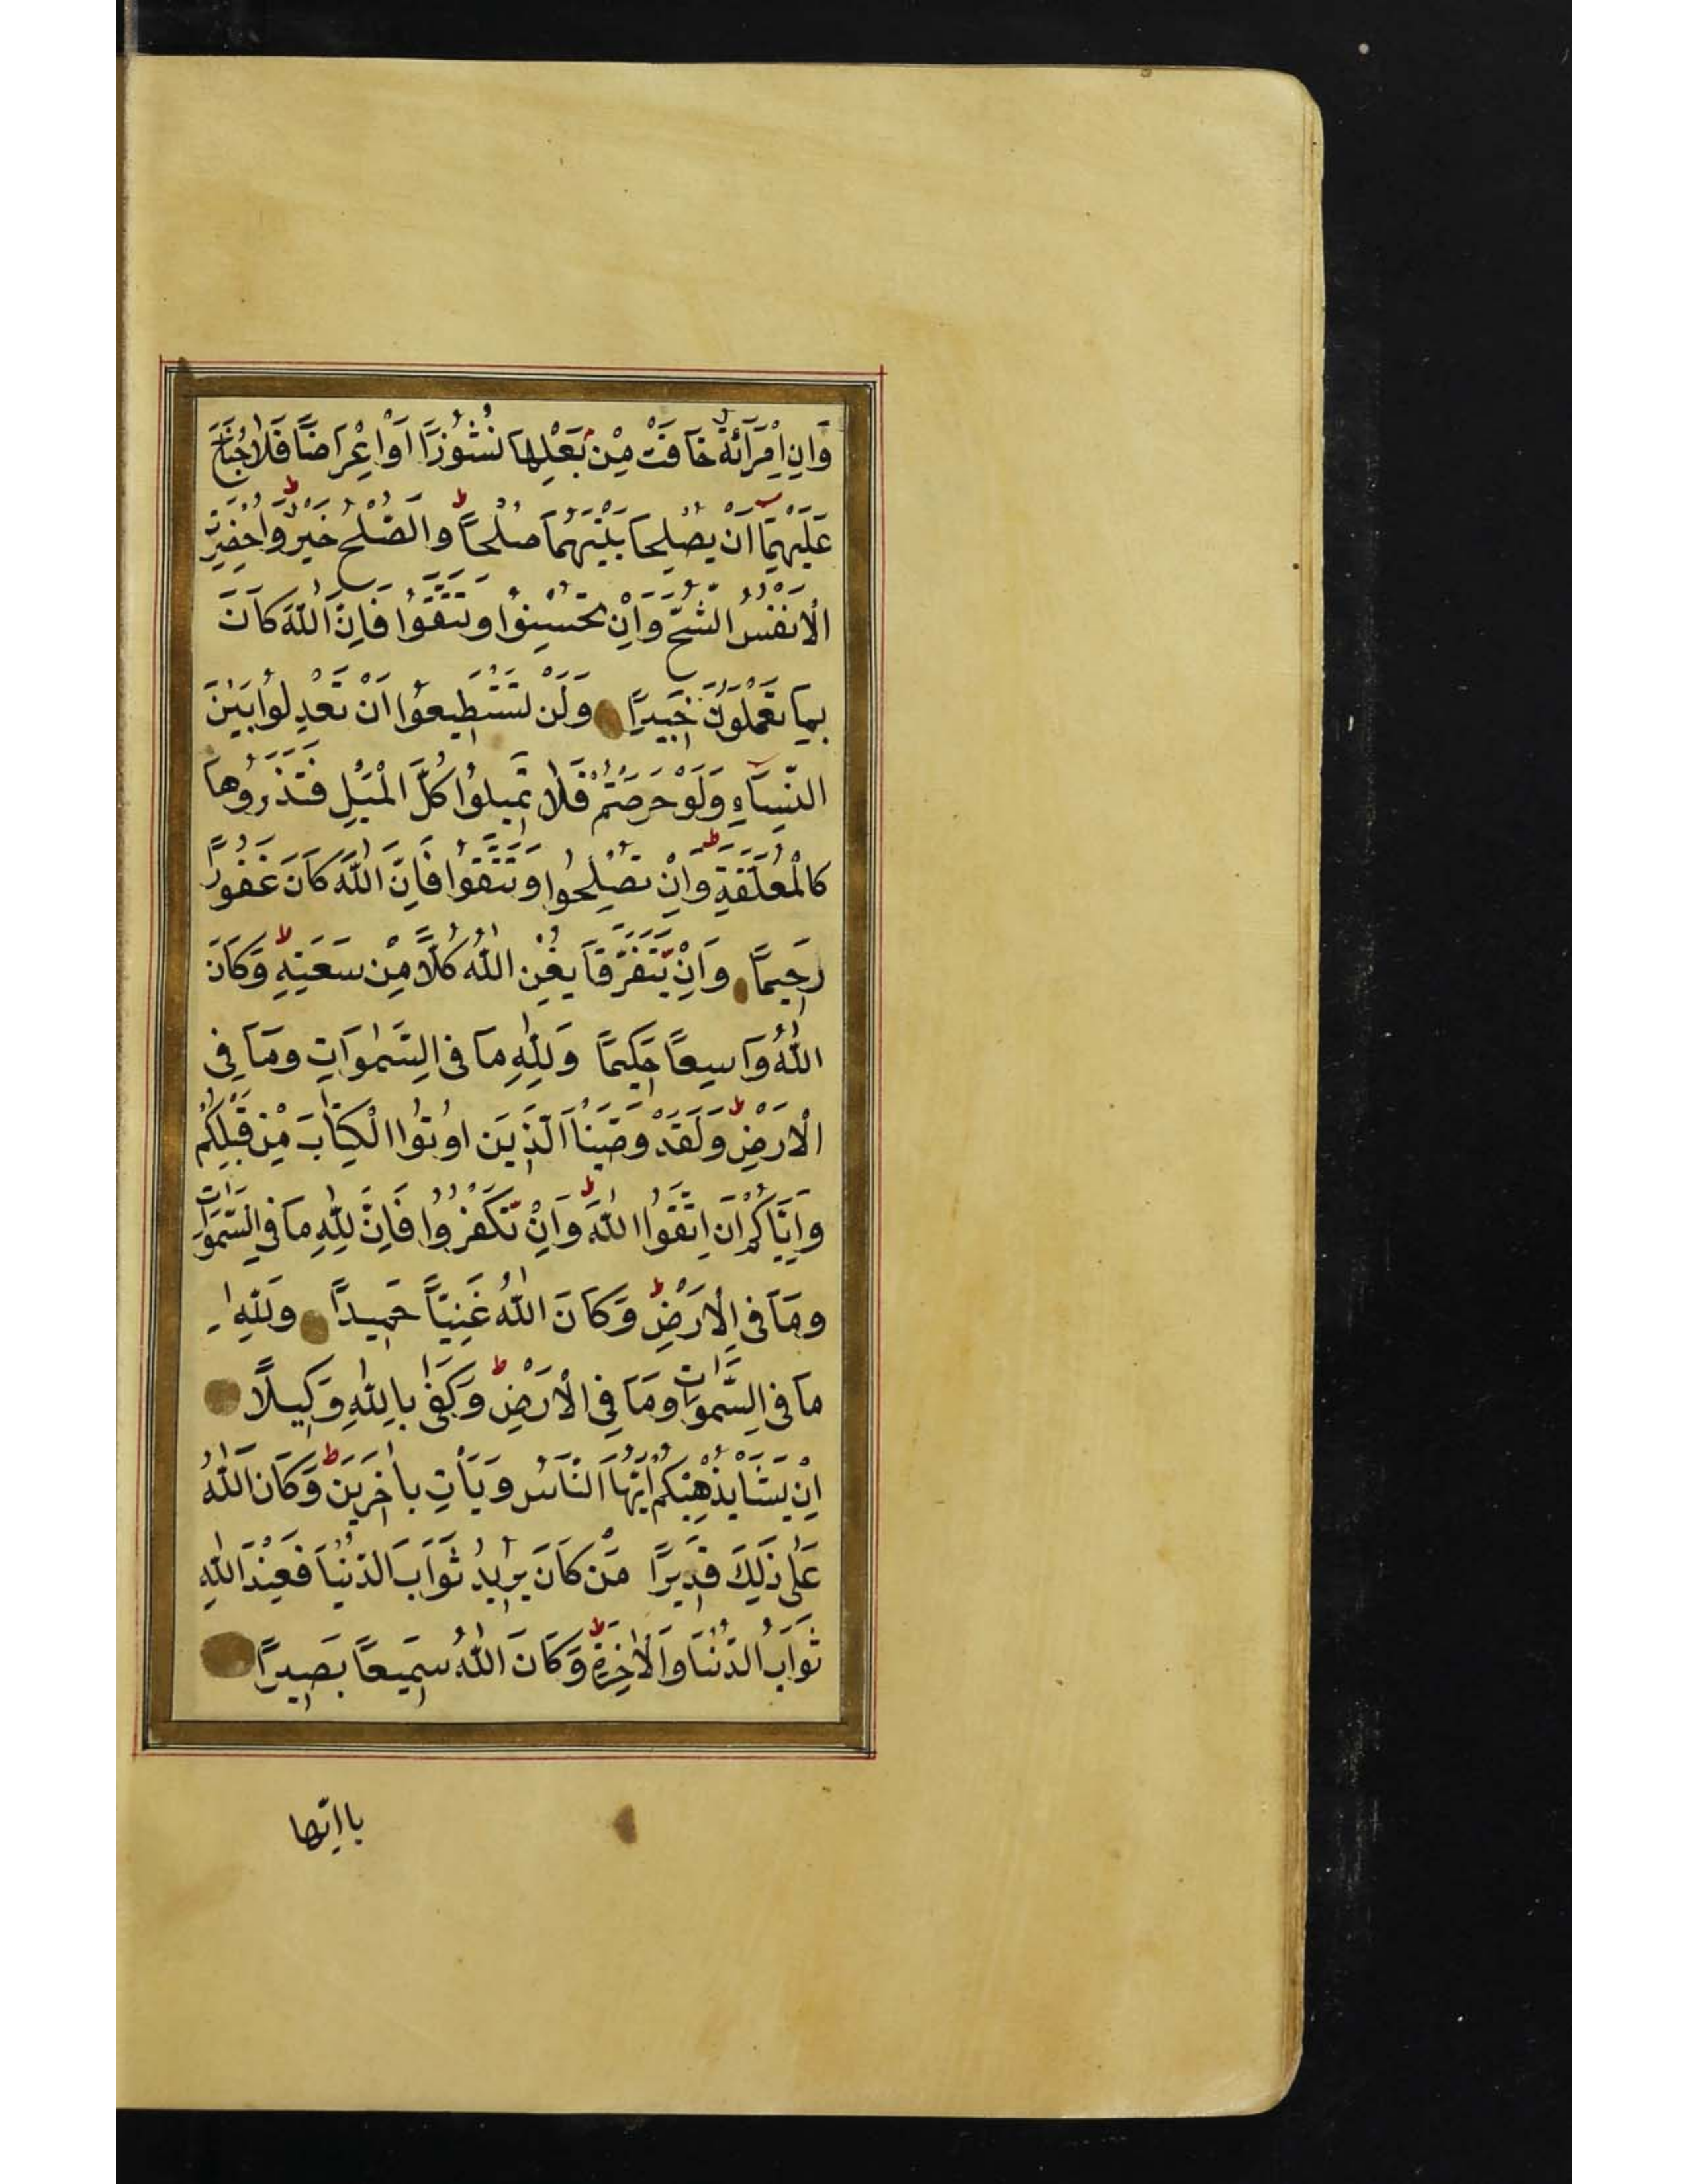 وَاِنِ امْرَاَئَةٌ خَافَتْ مِنْ بَعْلِهَا نُشُوْزًا اَوْ اِعْرَاضًا فَلَا جُنَاحَ
عَلَيْهِمَآ اَنْ يُصْلِحَا بَيْنَهُمَا صُلْحًا ط وَالصُّلْحُ خَيْرٌ ط وَاُحْضِرَتِ
الْاَنْفُسُ الشُّحَّ وَاِنْ تُحْسِنُوْا وَتَتَّقُوْا فَاِنَّ اللّٰهَ كَانَ
بِمَا تَعْمَلُوْنَ خَبِيْرًا وَلَنْ تَسْتَطِيْعُوْا اَنْ تَعْدِلُوْا بَيْنَ
النِّسَآءِ وَلَوْ حَرَصْتُمْ فَلَا تَمِيْلُوْا كُلَّ الْمَيْلِ فَتَذَرُوْهَا
كَالْمُعَلَّقَةِ ط وَاِنْ تُصْلِحُوْا وَتَتَّقُوْا فَاِنَّ اللّٰهَ كَانَ غَفُوْرًا
رَحِيْمًا وَاِنْ يَّتَفَرَّقَا يُغْنِ اللّٰهُ كُلًّا مِنْ سَعَتِهٖ لا وَكَانَ
اللّٰهُ وَاسِعًا حَكِيْمًا وَلِلّٰهِ مَا فِى السَّمٰوَاتِ وَمَا فِى
الْاَرْضِ ط وَلَقَدْ وَصَّيْنَا الَّذِيْنَ اُوْتُوا الْكِتَابَ مِنْ قَبْلِكُمْ
وَاِيَّاكُمْ اَنِ اتَّقُوا اللّٰهَ ط وَاِنْ تَكْفُرُوْا فَاِنَّ لِلّٰهِ مَا فِى السَّمٰوَاتِ
وَمَا فِى الْاَرْضِ ط وَكَانَ اللّٰهُ غَنِيًّا حَمِيْدًا وَلِلّٰهِ
مَا فِى السَّمٰوَاتِ وَمَا فِى الْاَرْضِ ط وَكَفٰى بِاللّٰهِ وَكِيْلًا
اِنْ يَشَأْ يُذْهِبْكُمْ اَيُّهَا النَّاسُ وَيَأْتِ بِاٰخَرِيْنَ ط وَكَانَ اللّٰهُ
عَلٰى ذٰلِكَ قَدِيْرًا مَنْ كَانَ يُرِيْدُ ثَوَابَ الدُّنْيَا فَعِنْدَ اللّٰهِ
ثَوَابُ الدُّنْيَا وَالْاٰخِرَةِ ط وَكَانَ اللّٰهُ سَمِيْعًا بَصِيْرًا
يا ايّها